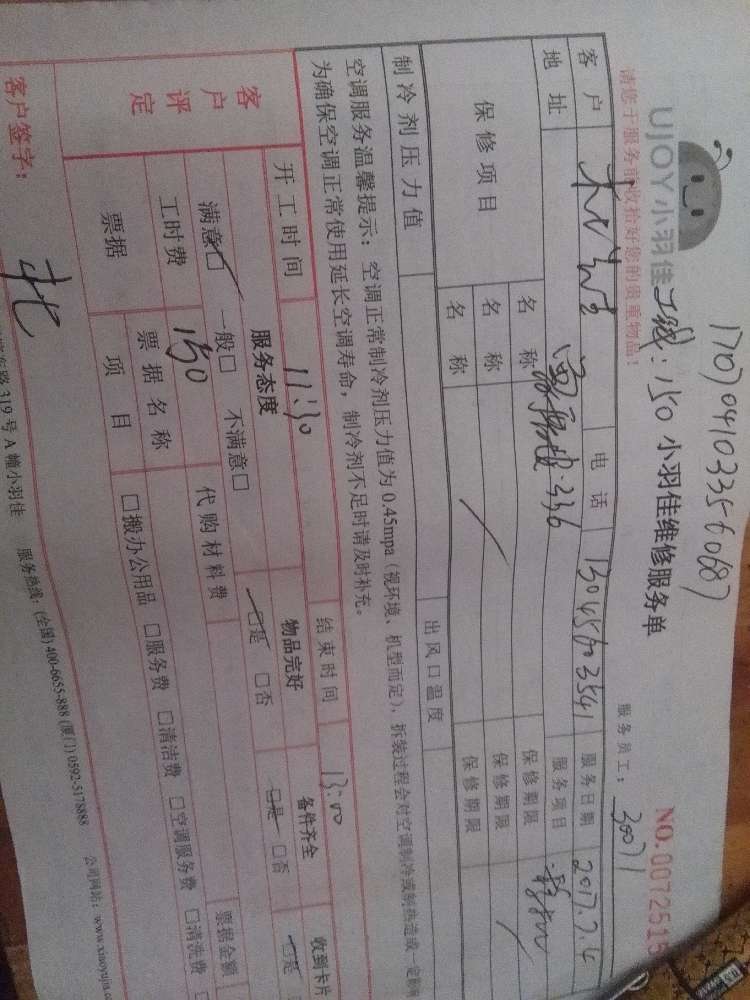 1707041033560687
UJOY小羽佳 工钱：150 小羽佳维修服务单 NO.0072515
请您于服务前收拾好您的贵重物品！ 服务员工：30071
客户 电话 13045603541 服务日期 2017.7.4
地址 336 服务项目
保修项目 名称 保修期限
名称 保修期限
名称 保修期限
制冷剂压力值 出风口温度
空调服务温馨提示：空调正常制冷剂压力值为0.45mpa（视环境、机型而定），拆装过程会对空调制冷或制热造成一定影响
为确保空调正常使用延长空调寿命，制冷剂不足时请及时补充。
开工时间 11:30 结束时间 13:00
客户评定 服务态度 物品完好 备件齐全 收到卡片
满意□ 一般□ 不满意□ □是 □否 □是 □否 □是
工时费 150 代购材料费 票据金额
票据 票据名称
项目 □搬办公用品 □服务费 □清洁费 □空调服务费 □清洗费
客户签字：
路319号A幢小羽佳 服务热线：(全国) 400-6655-888 (厦门) 0592-5178888 公司网站：www.xiaoyujia.co